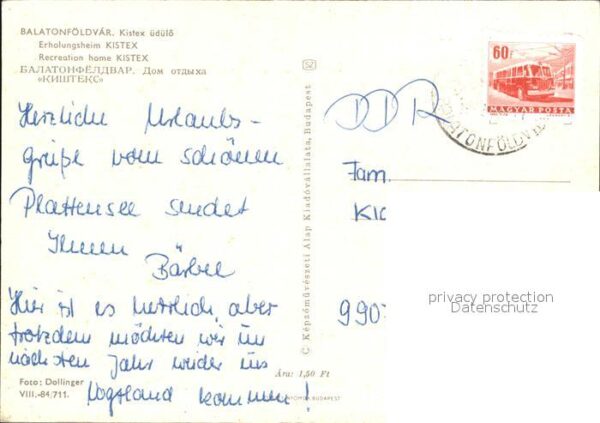 BALATONFÖLDVÁR. Kistex üdülő
Erholungsheim KISTEX
Recreation home KISTEX
БАЛАТОНФЁЛДВАР. Дом отдыха
«КИШТЕКС»
Herzliche Urlaubs-
grüße vom schönen
Plattensee sendet
Ihnen
Bärbel
Hier ist es herrlich, aber
trotzdem möchten wir im
nächsten Jahr wieder ins
Vogtland kommen!
Foto: Dollinger
VIII.-84/711.
C. Képzőművészeti Alap Kiadóvállalata, Budapest
Ára: 1,50 Ft
BUDAPEST
DDR
60f
MAGYAR POSTA
BALATONFÖLDV
Fam.
990
privacy protection
Datenschutz